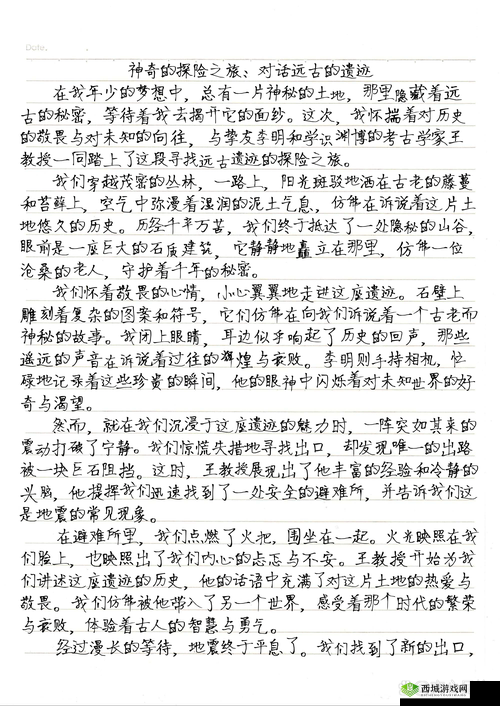 Date.
神奇的探险之旅、对话远古的遗迹
在我年少的梦想中，总有一片神秘的土地，那里隐藏着远
古的秘密，等待着我去揭开它的面纱。这次，我怀揣着对历史
的敬畏与对未知的向往，与挚友李明和学识渊博的考古学家王
教授一同踏上了这段寻找远古遗迹的探险之旅。
我们穿越茂密的丛林，一路上，阳光斑驳地洒在古老的藤蔓
和苔藓上，空气中弥漫着湿润的泥土气息，仿佛在诉说着这片土
地悠久的历史。历经千辛万苦，我们终于抵达了一处隐秘的山谷，
眼前是一座巨大的石质建筑，它静静地矗立在那里，仿佛一位
沧桑的老人，守护着千年的秘密。
我们怀着敬畏的心情，小心翼翼地走进这座遗迹。石壁上
雕刻着复杂的图案和符号，它们仿佛在向我们诉说着一个古老而
神秘的故事。我闭上眼睛，耳边似乎响起了历史的回声，那些
遥远的声音在诉说着过往的辉煌与衰败。李明则手持相机，忙
碌地记录着这些珍贵的瞬间，他的眼神中闪烁着对未知世界的好
奇与渴望。
然而，就在我们沉浸于这座遗迹的魅力时，一阵突如其来的
震动打破了宁静。我们惊慌失措地寻找出口，却发现唯一的出路
被一块巨石阻挡。这时，王教授展现出了他丰富的经验和冷静的
头脑，他指挥我们迅速找到了一处安全的避难所，并告诉我们这
是地震的常见现象。
在避难所里，我们点燃了火把，围坐在一起。火光映照在我
们脸上，也映照出了我们内心的忐忑与不安。王教授开始为我
们讲述这座遗迹的历史，他的话语中充满了对这片土地的热爱与
敬畏。我们仿佛被他带入了另一个世界，感受着那个时代的繁荣
与衰败，体验着古人的智慧与勇气。
经过漫长的等待，地震终于平息了。我们找到了新的出口，
西城游戏网